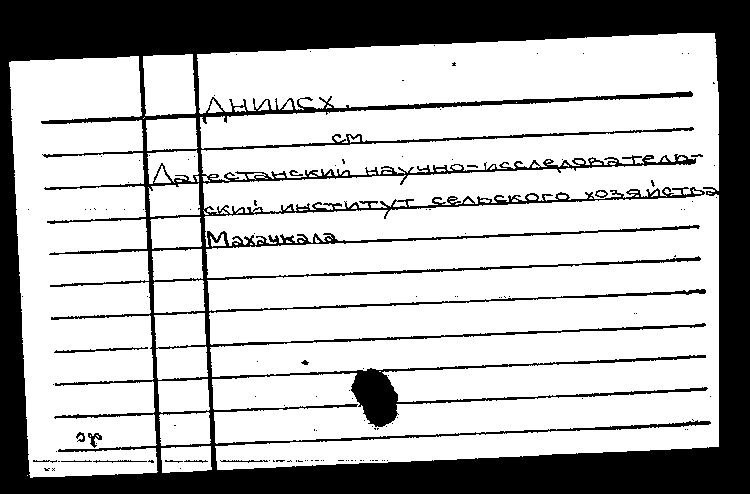 ДНИИСХ.
см.
Дагестанский научно-исследователь-
ский институт сельского хозяйства
Махачкала.